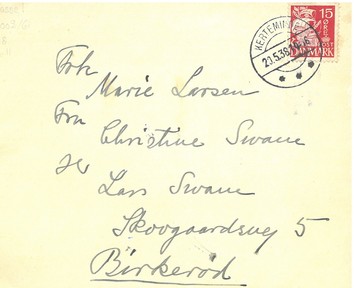 15
ØRE
DANMARK
KERTEMINDE
21.5.38
Frk
Marie Larsen
Fru
Christine Swane
Hr
Lars Swane
Skovgaardsvej 5
Birkerød